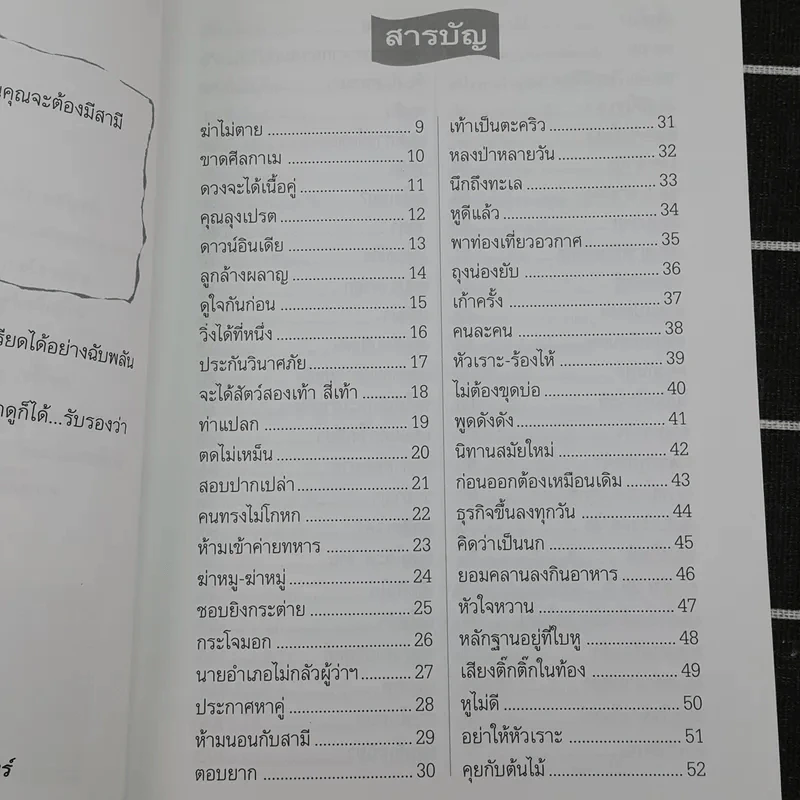 คุณจะต้องมีสามี
รียดได้อย่างฉับพลัน
าดูก็ได้...รับรองว่า
ร์
สารบัญ
ฆ่าไม่ตาย 9
ขาดศีลกาเม 10
ดวงจะได้เนื้อคู่ 11
คุณลุงเปรต 12
ดาวน์อินเดีย 13
ลูกล้างผลาญ 14
ดูใจกันก่อน 15
วิ่งได้ที่หนึ่ง 16
ประกันวินาศภัย 17
จะได้สัตว์สองเท้า สี่เท้า 18
ท่าแปลก 19
ตดไม่เหม็น 20
สอบปากเปล่า 21
คนทรงไม่โกหก 22
ห้ามเข้าค่ายทหาร 23
ฆ่าหมู-ฆ่าหมู่ 24
ชอบยิงกระต่าย 25
กระโจมอก 26
นายอำเภอไม่กลัวผู้ว่าฯ 27
ประกาศหาคู่ 28
ห้ามนอนกับสามี 29
ตอบยาก 30
เท้าเป็นตะคริว 31
หลงป่าหลายวัน 32
นึกถึงทะเล 33
หูดีแล้ว 34
พาท่องเที่ยวอวกาศ 35
ถุงน่องยับ 36
เก้าครั้ง 37
คนละคน 38
หัวเราะ-ร้องไห้ 39
ไม่ต้องขุดบ่อ 40
พูดดังดัง 41
นิทานสมัยใหม่ 42
ก่อนออกต้องเหมือนเดิม 43
ธุรกิจขึ้นลงทุกวัน 44
คิดว่าเป็นนก 45
ยอมคลานลงกินอาหาร 46
หัวใจหวาน 47
หลักฐานอยู่ที่ใบหู 48
เสียงติ๊กติ๊กในท้อง 49
หูไม่ดี 50
อย่าให้หัวเราะ 51
คุยกับต้นไม้ 52